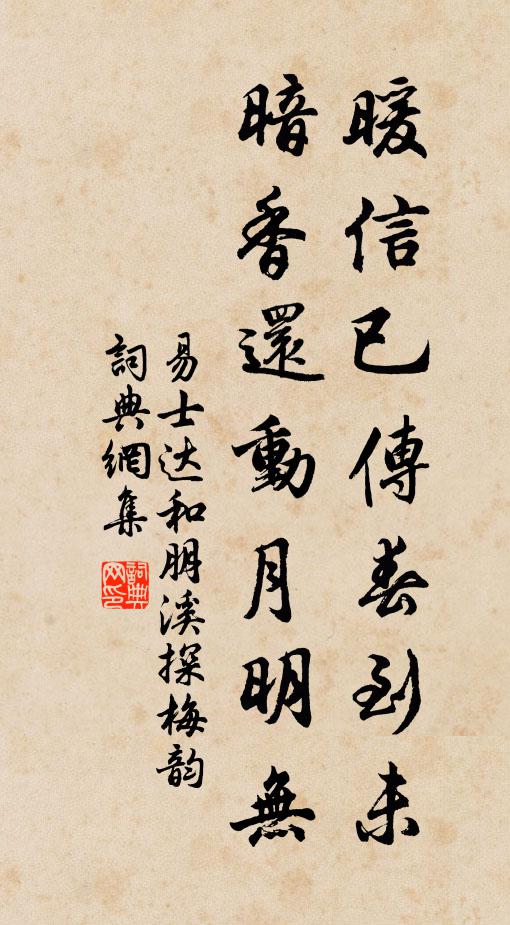 暖信已傳春到未
暗香還動月明無
易士达和朋溪探梅韵
詞典網集
詞典网印